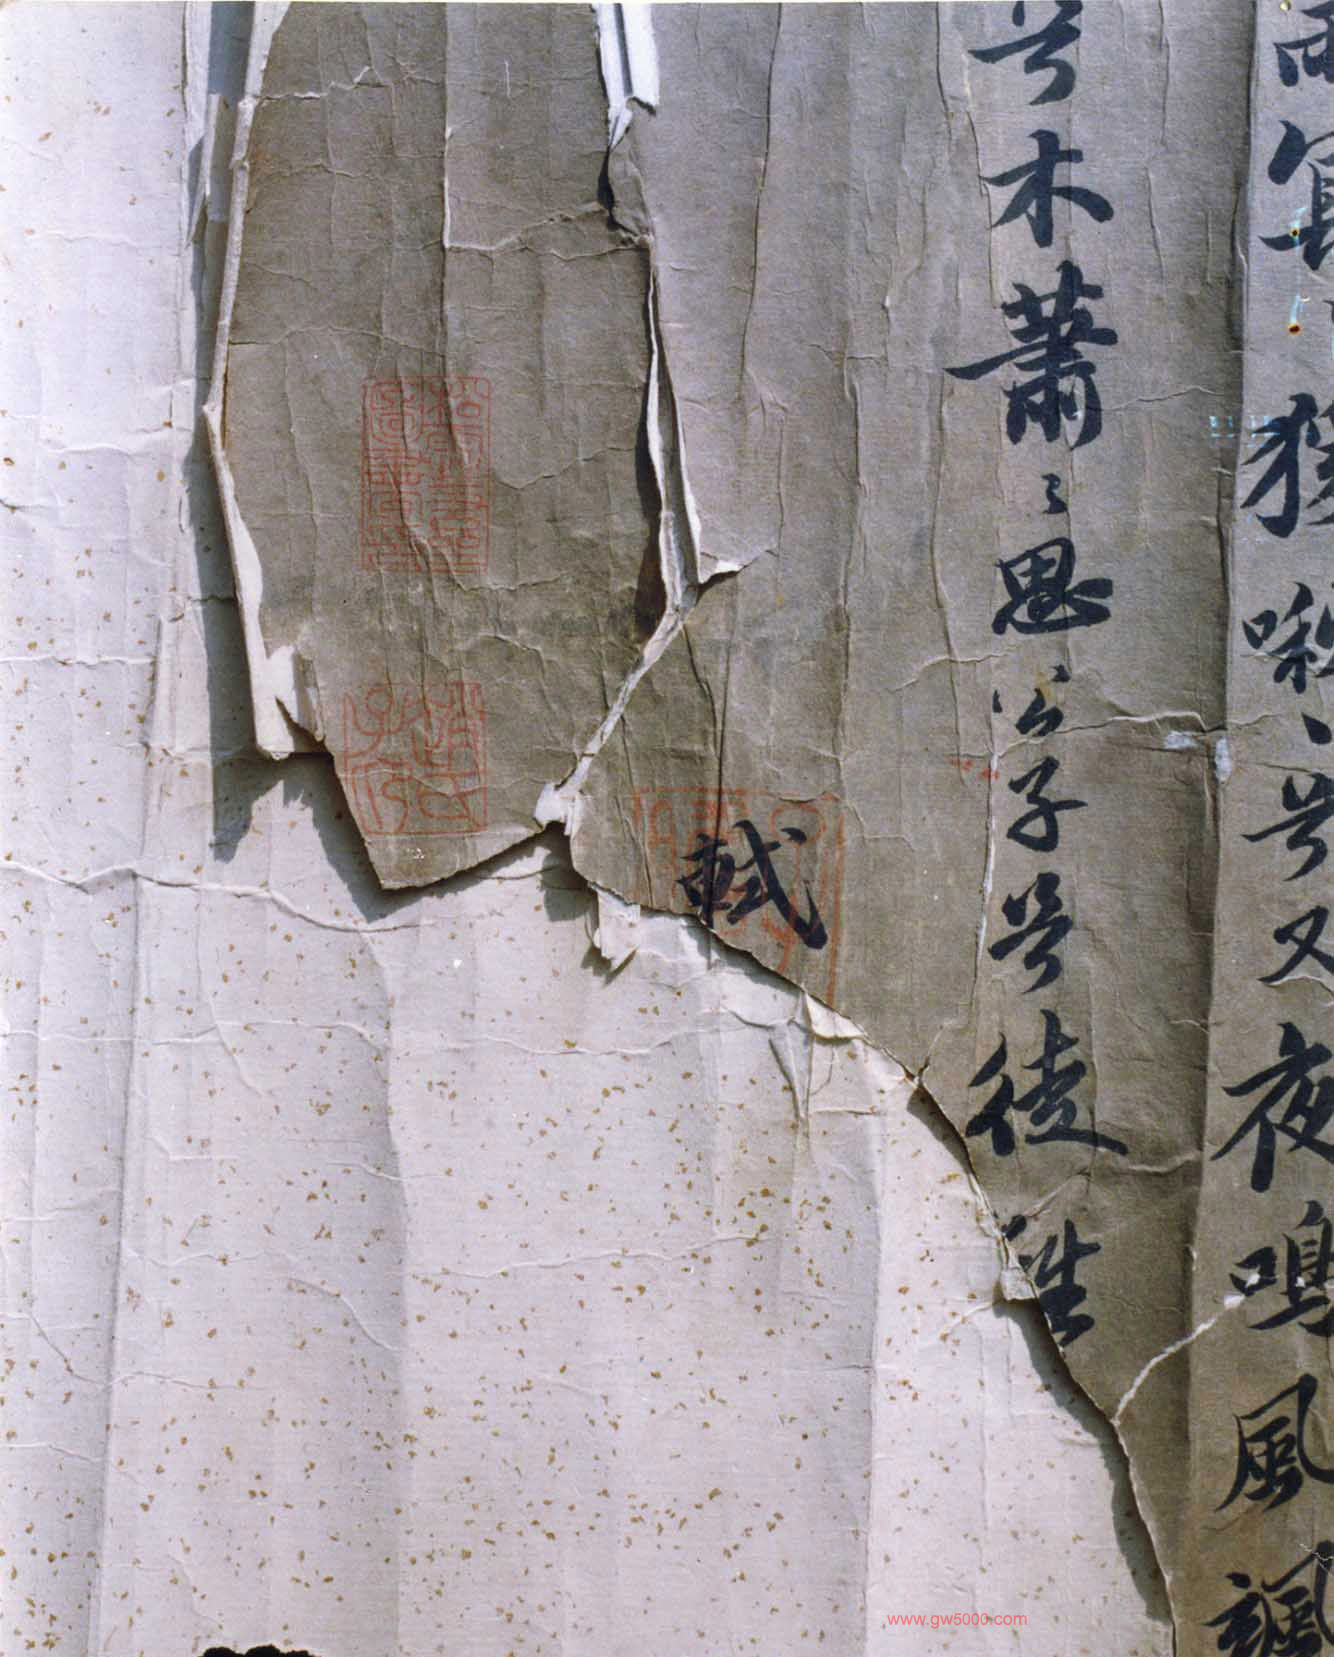 雨冥〻猨啾〻兮又夜鳴風颯
兮木蕭〻思公子兮徒離
軾
www.gw5000.com